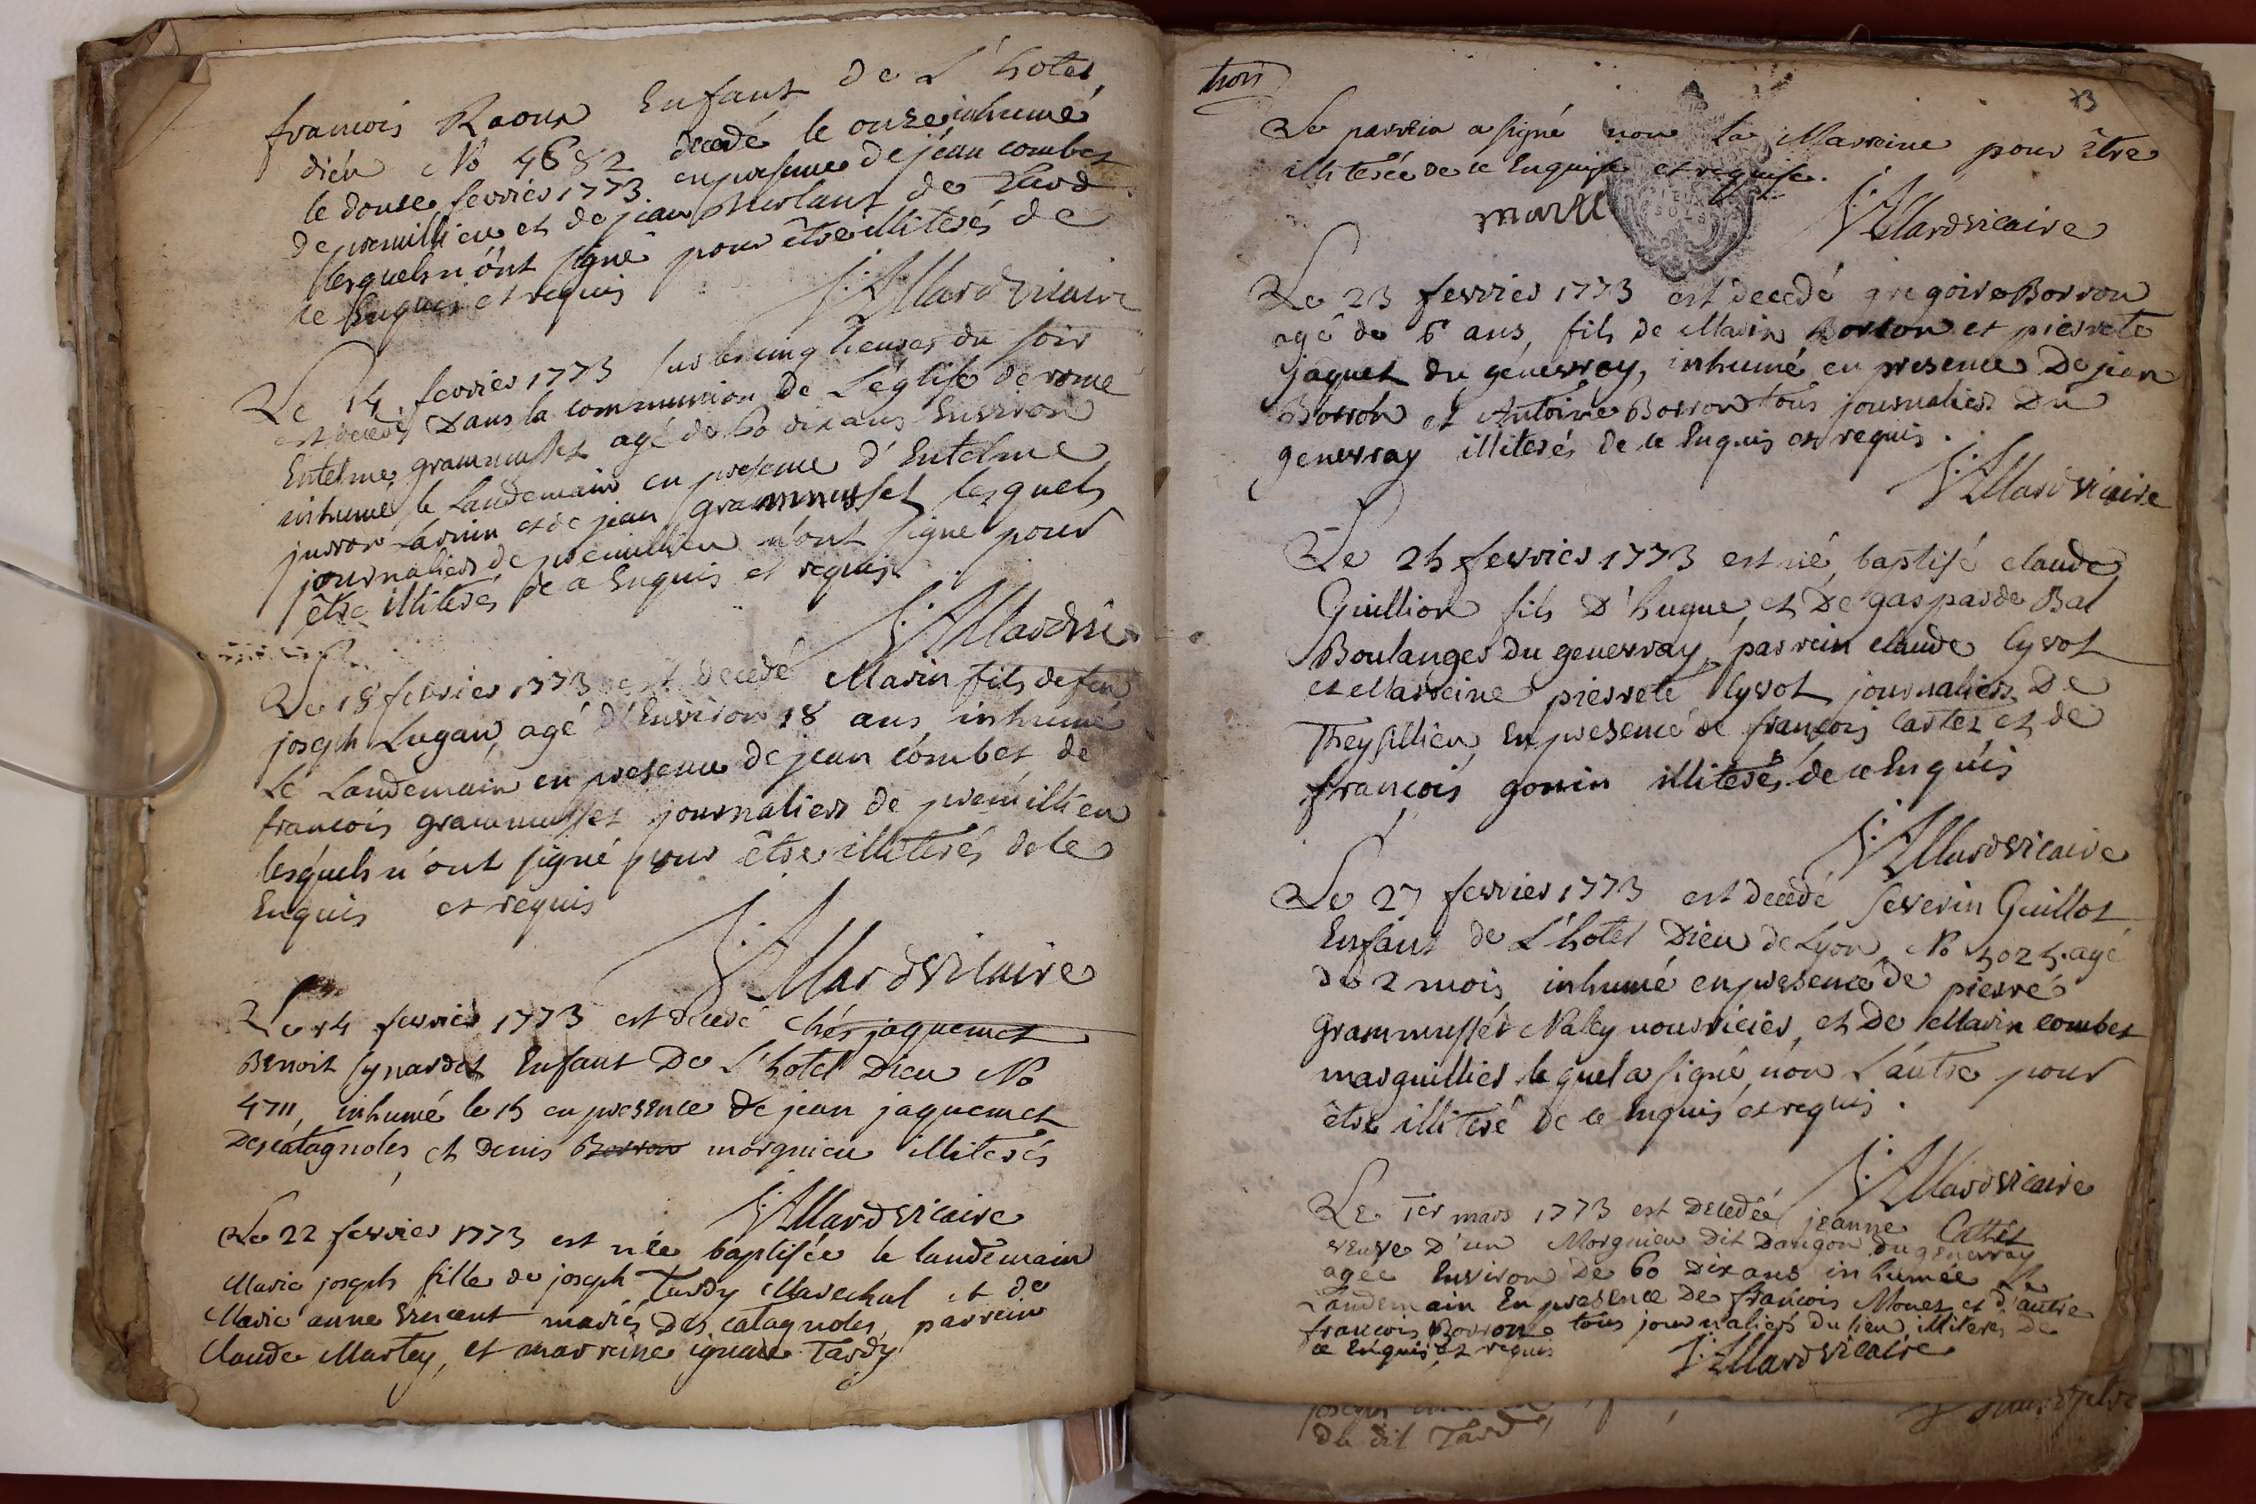 francois Raoux Enfant de L'hotel
dieu No 4682 decedé le onze inhumé
le douze fevrier 1773 en presence de jean combet
de premillieu et de jean de
lesquels n'ont signé pour être illiterés de
ce Enquis et requis
J: Allard vicaire
Le 14 fevrier 1773 sur les cinq heures du soir
est decedé Dans la communion de L'église de rome
Entelme grammusset agé de 60 dix ans Environ
inhumé le Landemain en presence d'Entelme
jurron et de jean grammusset lesquels
journaliers de premillieu n'ont signé pour
être illiterés de ce Enquis et requis
J: Allard vic
Le 18 fevrier 1773 est decedé Marin fils de feu
joseph Lugan, agé d'Environ 18 ans inhumé
Le Landemain en presence de jean combet de
francois grammusset journaliers de premillieu
lesquels n'ont signé pour être illiterés de ce
Enquis et requis
J: Allard vicaire
Le 14 fevrier 1773 est decedé chés jaquemet
Benoit synardet Enfant De L'hotel Dieu No
4711, inhumé le 15 en presence de jean jaquemet
Des catagnoles, et denis Borron morgnieu illiterés
J: Allard vicaire
Le 22 fevrier 1773 est née baptisée le landemain
Marie joseph fille de joseph Tardy Marechal et de
Marie anne vincent mariés Des catagnoles, parrein
Claude Martey, et marreine Tardy
trois
73
Le parrein a signé non La Marreine pour être
illiterée de ce Enquise et requise.
J: Allard vicaire
Le 23 fevrier 1773 est decedé gregoire Borron
agé de 6 ans, fils de Marin Borron et pierrete
jaquet du génevray, inhumé en presence De jean
Borron et Antoine Borron tous journaliers Du
genevray illiterés de ce Enquis et requis.
J: Allard vicaire
Le 25 fevrier 1773 est né, baptisé claude
Guillion fils D'hugue, et De gasparde Bal
Boulanger du genevray, parrein claude Cyvot
et Marreine pierrete Cyvot journaliers De
Theysillieu, En presence de françois Cartet et de
françois gonin illiterés de ce Enquis
J: Allard vicaire
Le 27 fevrier 1773 est decedé severin Guillot
Enfant de L'hotel Dieu de Lyon, No 5025. agé
de 2 mois, inhumé en presence de pierre
Grammusset Naley nourricier, et De Marin combet
marguillier lequel a signé, non L'autre pour
être illiteré de ce Enquis et requis.
J: Allard vicaire
Le 1er mars 1773 est Decedée jeanne Cottet
veuve D'un Morgnieu Dit Dangon du genevray
agée Environ De 60 Dix ans inhumée Le
Landemain En presence De françois Monet et d'autre
françois Borron tous journaliers du lieu, illiteres De
ce Enquis et requis
J: Allard vicaire
du dit Tardy